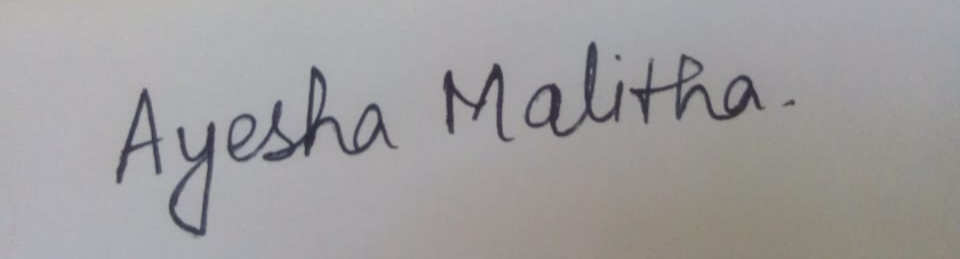 Ayesha Malitha.